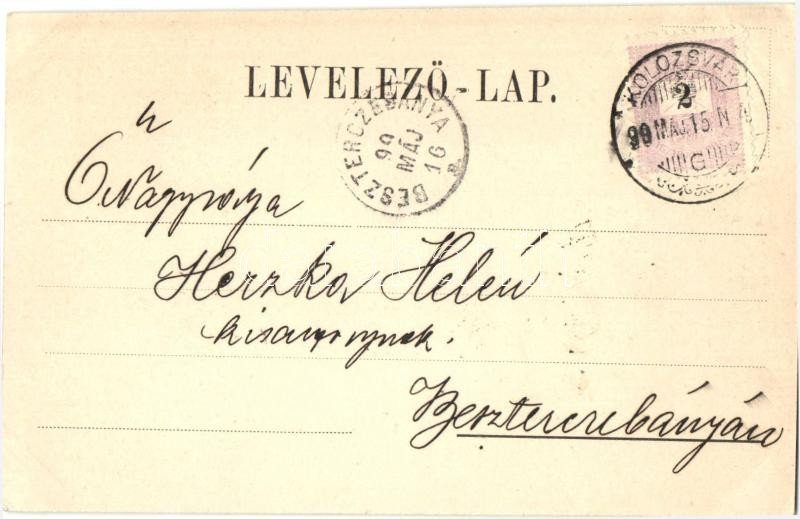 LEVELEZŐ-LAP.
KOLOZSVÁR
2
99 MÁJ. 15 N
G
BESZTERCZEBÁNYA
99
MÁJ
16
Ő Nagysága
Herzka Helén
kisasszonynak.
Besztercebányán